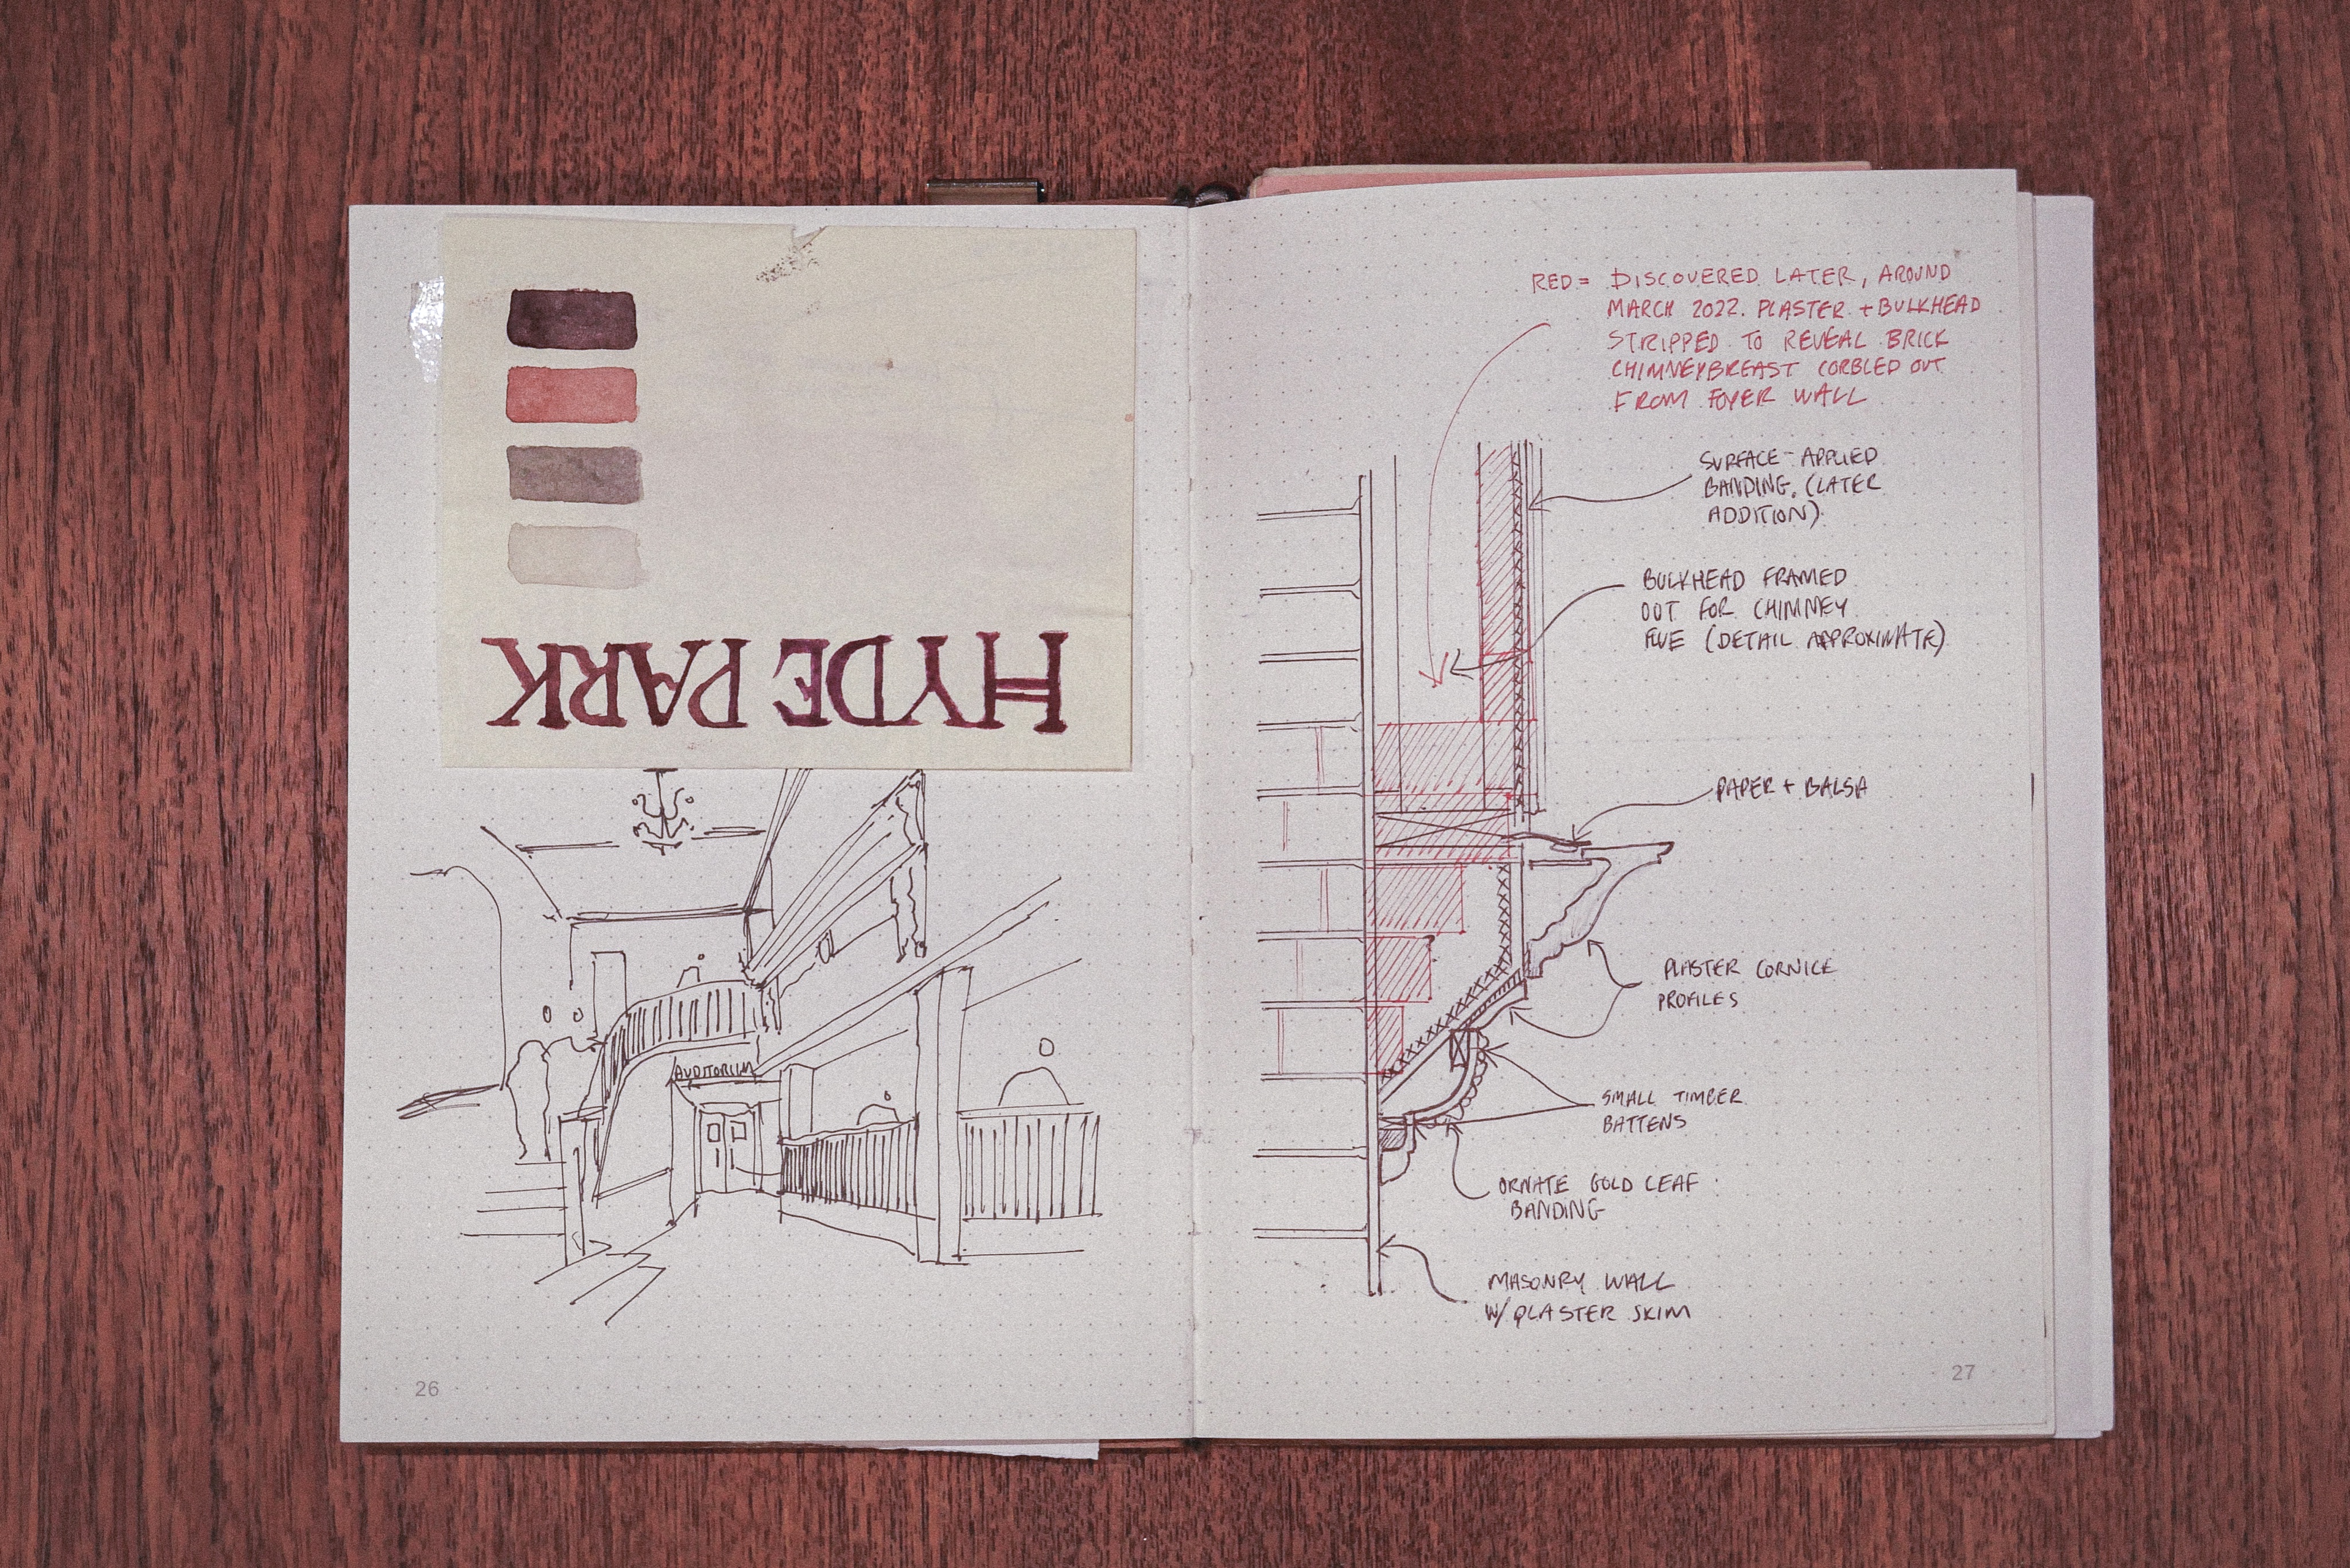 HYDE PARK
AUDITORIUM
26
RED = DISCOVERED LATER, AROUND
MARCH 2022. PLASTER + BULKHEAD
STRIPPED TO REVEAL BRICK
CHIMNEYBREAST CORBLED OUT
FROM FOYER WALL
SURFACE-APPLIED
BANDING. (LATER
ADDITION)
BULKHEAD FRAMED
OUT FOR CHIMNEY
FLUE (DETAIL APPROXIMATE)
PAPER + BALSA
PLASTER CORNICE
PROFILES
SMALL TIMBER
BATTENS
ORNATE GOLD LEAF
BANDING
MASONRY WALL
W/ PLASTER SKIM
27